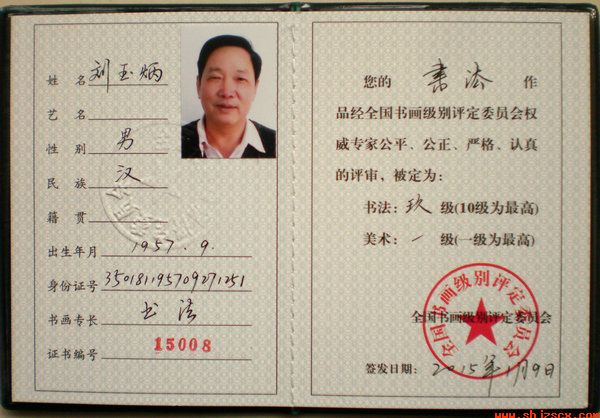 姓名 刘玉炳
艺名
性别 男
民族 汉
籍贯
出生年月 1957.9.
身份证号 350181195709271251
书画专长 书法
证书编号 15008
您的 書法 作
品经全国书画级别评定委员会权
威专家公平、公正、严格、认真
的评审，被定为：
书法：玖 级(10级为最高)
美术：一 级(一级为最高)
全国书画级别评定委员会
全国书画级别评定委员会
签发日期：2015年1月9日
www.shjzscx.com